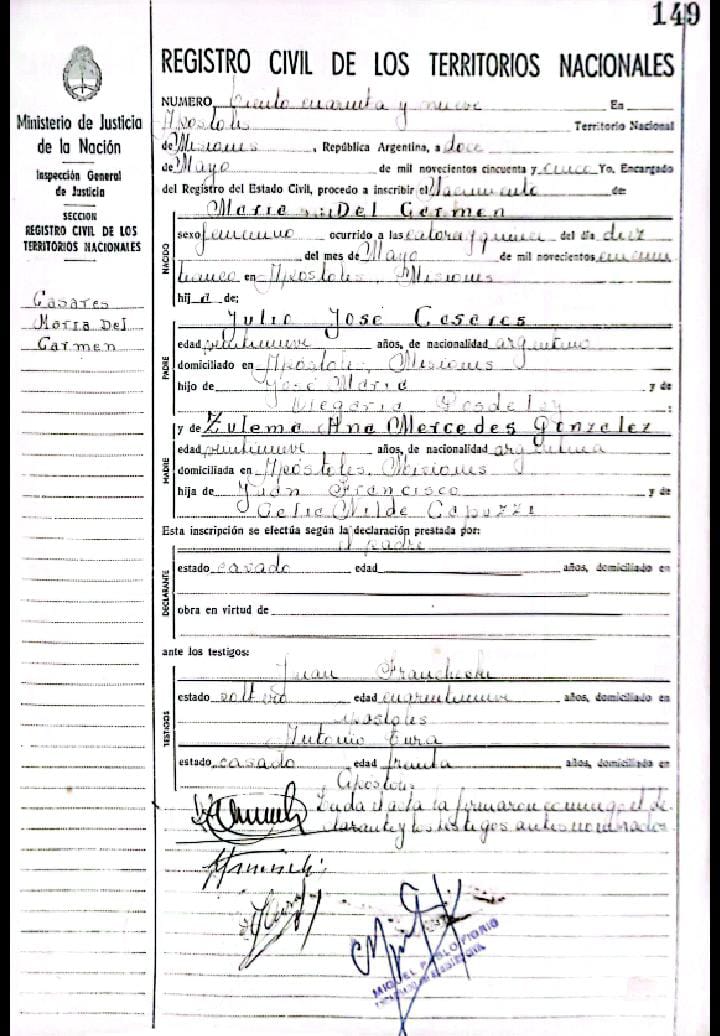 149
REGISTRO CIVIL DE LOS TERRITORIOS NACIONALES
Ministerio de Justicia
de la Nación
Inspección General
de Justicia
SECCION
REGISTRO CIVIL DE LOS
TERRITORIOS NACIONALES
Casares
Maria Del
Carmen
NUMERO Ciento cuarenta y nueve En
Apostoles Territorio Nacional
de Misiones, República Argentina, a doce
de Mayo de mil novecientos cincuenta y cinco Yo, Encargado
del Registro del Estado Civil, procedo a inscribir el Nacimiento de:
Maria Del Carmen
NACIDO
sexo femenino ocurrido a las catorce y quince del día diez
del mes de Mayo de mil novecientos cincuen
ticinco en Apostoles, Misiones
hija de:
PADRE
Julio José Casares
edad veintinueve años, de nacionalidad argentino
domiciliado en Apóstoles, Misiones
hijo de José Maria y de
:
MADRE
y de Zulema Ana Mercedes Gonzalez
edad veintinueve años, de nacionalidad argentina
domiciliada en Apóstoles, Misiones
hija de Juan Francisco y de
Celia Nilde Capuzzi
Esta inscripción se efectúa según la declaración prestada por:
el padre
DECLARANTE
estado casado edad años, domiciliado en
obra en virtud de
ante los testigos:
TESTIGOS
Juan
estado soltero edad años, domiciliado en
Apostoles
Antonio
estado casado edad treinta años, domiciliado en
Apóstoles
Leida el acta la firmaron conmigo el de-
clarante y los testigos antes nombrados
MIGUEL PABLO